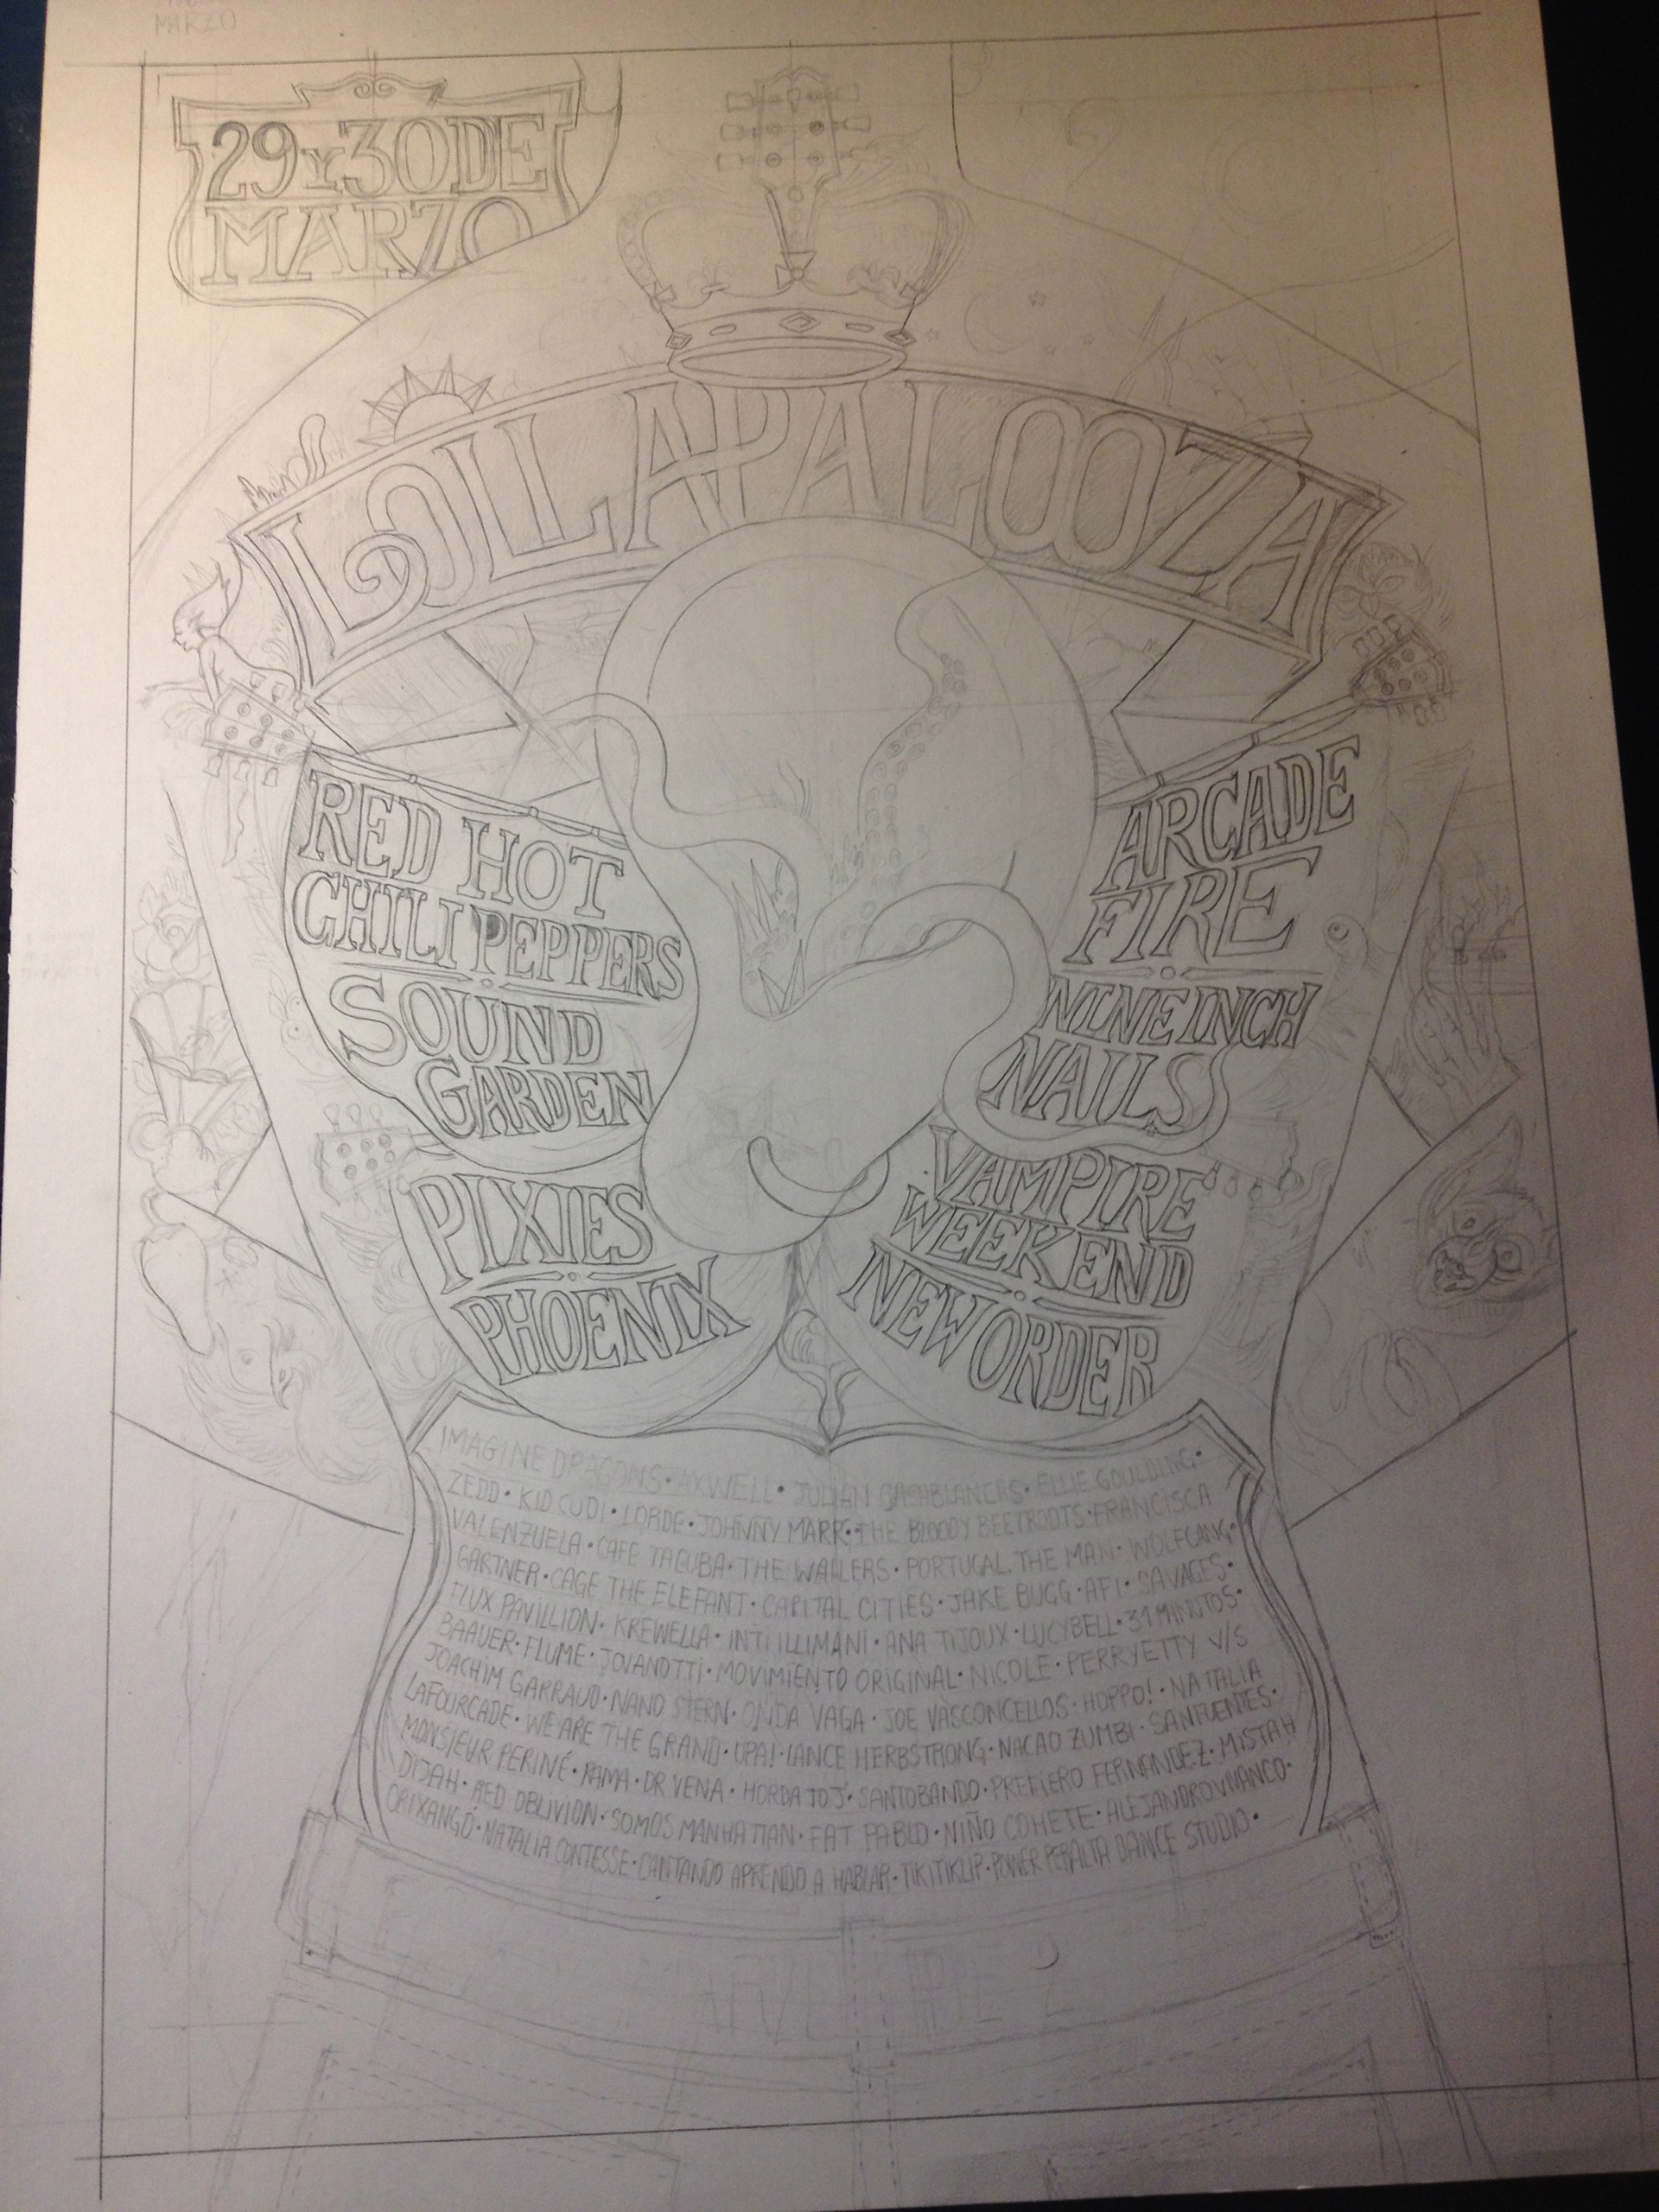 MARZO
29 Y 30 DE
MARZO
LOLLAPALOOZA
RED HOT
CHILI PEPPERS
SOUND
GARDEN
PIXIES
PHOENIX
ARCADE
FIRE
NINE INCH
NAILS
VAMPIRE
WEEKEND
NEW ORDER
IMAGINE DRAGONS • AXWELL • JULIAN CASABLANCAS • ELLIE GOULDING •
ZEDD • KID CUDI • LORDE • JOHNNY MARR • THE BLOODY BEETROOTS • FRANCISCA
VALENZUELA • CAFE TACUBA • THE WAILERS • PORTUGAL. THE MAN • WOLFGANG
GARTNER • CAGE THE ELEFANT • CAPITAL CITIES • JAKE BUGG • AFI • SAVAGES •
FLUX PAVILLION • KREWELLA • INTI ILLIMANI • ANA TIJOUX • LUCYBELL • 31 MINUTOS •
BAAUER • FLUME • JOVANOTTI • MOVIMIENTO ORIGINAL • NICOLE • PERRYETTY V/S
JOACHIM GARRAUD • NANO STERN • ONDA VAGA • JOE VASCONCELLOS • HOPPO! • NATALIA
LAFOURCADE • WE ARE THE GRAND • UPA! • LANCE HERBSTRONG • NACAO ZUMBI • SANFUENTES •
MONSIEUR PERINÉ • RAMA • DR VENA • HORDATOJ • SANTOBANDO • PREFIERO FERNANDEZ • MISTAH
DIJAH • RED OBLIVION • SOMOS MANHATTAN • FAT PABLO • NIÑO COHETE • ALEJANDRO VIVANCO •
ORIXANGÓ • NATALIA CONTESSE • CANTANDO APRENDO A HABLAR • TIKITIKLIP • POWER PERALTA DANCE STUDIO •